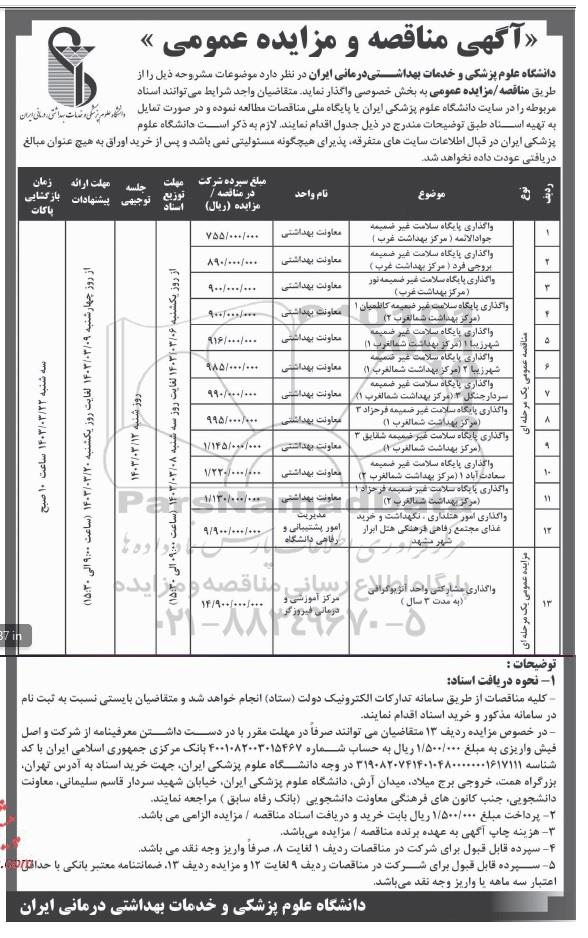 «آگهی مناقصه و مزایده عمومی»
دانشگاه علوم پزشکی و خدمات بهداشتی درمانی ایران
دانشگاه علوم پزشکی و خدمات بهداشتی‌درمانی ایران در نظر دارد موضوعات مشروحه ذیل را از
طریق مناقصه/مزایده عمومی به بخش خصوصی واگذار نماید. متقاضیان واجد شرایط می‌توانند اسناد
مربوطه را در سایت دانشگاه علوم پزشکی ایران یا پایگاه ملی مناقصات مطالعه نموده و در صورت تمایل
به تهیه اسناد طبق توضیحات مندرج در ذیل جدول اقدام نمایند. لازم به ذکر است دانشگاه علوم
پزشکی ایران در قبال اطلاعات سایت های متفرقه، پذیرای هیچگونه مسئولیتی نمی باشد و پس از خرید اوراق به هیچ عنوان مبالغ
دریافتی عودت داده نخواهد شد.
ردیف نوع موضوع نام واحد مبلغ سپرده شرکت در مناقصه / مزایده (ریال) مهلت توزیع اسناد جلسه توجیهی مهلت ارائه پیشنهادات زمان بازگشایی پاکات
مناقصه عمومی یک مرحله ای
۱ واگذاری پایگاه سلامت غیر ضمیمه جوادالائمه ( مرکز بهداشت غرب ) معاونت بهداشتی ۷۵۵/۰۰۰/۰۰۰
۲ واگذاری پایگاه سلامت غیر ضمیمه بروجی فرد ( مرکز بهداشت غرب ) معاونت بهداشتی ۸۹۰/۰۰۰/۰۰۰
۳ واگذاری پایگاه سلامت غیر ضمیمه نور (مرکز بهداشت غرب) معاونت بهداشتی ۹۰۰/۰۰۰/۰۰۰
۴ واگذاری پایگاه سلامت غیر ضمیمه کاظمیان ۱ (مرکز بهداشت شمالغرب ۲) معاونت بهداشتی ۹۰۰/۰۰۰/۰۰۰
۵ واگذاری پایگاه سلامت غیر ضمیمه شهرزیبا ۱ (مرکز بهداشت شمالغرب ۱) معاونت بهداشتی ۹۱۶/۰۰۰/۰۰۰
۶ واگذاری پایگاه سلامت غیر ضمیمه شهرزیبا ۲ (مرکز بهداشت شمالغرب ۱) معاونت بهداشتی ۹۸۵/۰۰۰/۰۰۰
۷ واگذاری پایگاه سلامت غیر ضمیمه سردارجنگل ۳ (مرکز بهداشت شمالغرب ۱) معاونت بهداشتی ۹۹۰/۰۰۰/۰۰۰
۸ واگذاری پایگاه سلامت غیر ضمیمه فرحزاد ۳ (مرکز بهداشت شمالغرب ۱) معاونت بهداشتی ۹۹۵/۰۰۰/۰۰۰
۹ واگذاری پایگاه سلامت غیر ضمیمه شقایق ۳ (مرکز بهداشت شمالغرب ۱) معاونت بهداشتی ۱/۱۴۵/۰۰۰/۰۰۰
۱۰ واگذاری پایگاه سلامت غیر ضمیمه سعادت آباد ۱ (مرکز بهداشت شمالغرب ۲) معاونت بهداشتی ۱/۲۲۰/۰۰۰/۰۰۰
۱۱ واگذاری پایگاه سلامت غیر ضمیمه فرحزاد ۱ (مرکز بهداشت شمالغرب ۲) معاونت بهداشتی ۱/۱۳۰/۰۰۰/۰۰۰
۱۲ واگذاری امور هتلداری ، نگهداشت و خرید غذای مجتمع رفاهی فرهنگی هتل ابرار شهر مشهد مدیریت امور پشتیبانی و رفاهی دانشگاه ۹/۹۰۰/۰۰۰/۰۰۰
مزایده عمومی یک مرحله ای
۱۳ واگذاری مشارکتی واحد آنژیوگرافی (به مدت ۳ سال ) مرکز آموزشی و درمانی فیروزگر ۱۴/۹۰۰/۰۰۰/۰۰۰
از روز یکشنبه ۱۴۰۳/۰۳/۰۶ لغایت روز سه شنبه ۱۴۰۳/۰۳/۰۸ (ساعت ۰۹:۰۰ الی ۱۵:۳۰)
روز شنبه ۱۴۰۳/۰۳/۱۲
از روز چهارشنبه ۱۴۰۳/۰۳/۰۹ لغایت روز یکشنبه ۱۴۰۳/۰۳/۲۰ (ساعت ۹:۰۰ الی ۱۵:۳۰)
سه شنبه ۱۴۰۳/۰۳/۲۲ ساعت ۱۰ صبح
ParsNamadData
پایگاه اطلاع رسانی مناقصه و مزایده
۰۲۱-۸۸۳۴۹۶۷۰-۵
37 in
توضیحات :
۱- نحوه دریافت اسناد:
- کلیه مناقصات از طریق سامانه تدارکات الکترونیک دولت (ستاد) انجام خواهد شد و متقاضیان بایستی نسبت به ثبت نام
در سامانه مذکور و خرید اسناد اقدام نمایند.
- در خصوص مزایده ردیف ۱۳ متقاضیان می توانند صرفاً در مهلت مقرر با در دست داشتن معرفینامه از شرکت و اصل
فیش واریزی به مبلغ ۱/۵۰۰/۰۰۰ ریال به حساب شماره ۴۰۰۱۰۸۲۰۰۳۰۱۵۴۶۷ بانک مرکزی جمهوری اسلامی ایران با کد
شناسه ۳۱۹۰۸۲۰۷۴۱۴۰۱۰۴۸۰۰۰۰۰۰۰۱۶۱۷۱۱۱ در وجه دانشگاه علوم پزشکی ایران، جهت خرید اسناد به آدرس تهران،
بزرگراه همت، خروجی برج میلاد، میدان آرش، دانشگاه علوم پزشکی ایران، خیابان شهید سردار قاسم سلیمانی، معاونت
دانشجویی، جنب کانون های فرهنگی معاونت دانشجویی (بانک رفاه سابق ) مراجعه نمایند.
۲- پرداخت مبلغ ۱/۵۰۰/۰۰۰ ریال بابت خرید و دریافت اسناد مناقصه / مزایده الزامی می باشد.
۳- هزینه چاپ آگهی به عهده برنده مناقصه / مزایده می‌باشد.
۴- سپرده قابل قبول برای شرکت در مناقصات ردیف ۱ لغایت ۸، صرفاً واریز وجه نقد می باشد.
۵- سپرده قابل قبول برای شرکت در مناقصات ردیف ۹ لغایت ۱۲ و مزایده ردیف ۱۳، ضمانتنامه معتبر بانکی با حداقل
اعتبار سه ماهه یا واریز وجه نقد می‌باشد.
دانشگاه علوم پزشکی و خدمات بهداشتی درمانی ایران